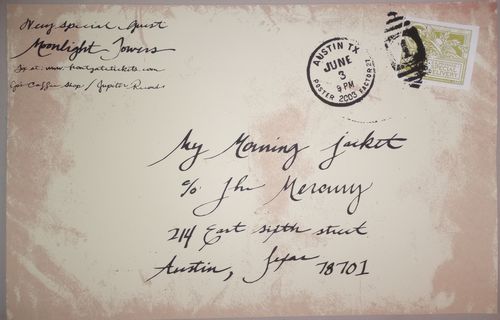 Very special Guest
Moonlight Towers
Tix at: www.frontgatetickets.com
Gia's Coffee Shop / Jupiter Records
AUSTIN TX
JUNE
3
9 PM
2003
POSTER FACTORY
My Morning Jacket
c/o The Mercury
214 East sixth street
Austin, Texas 78701